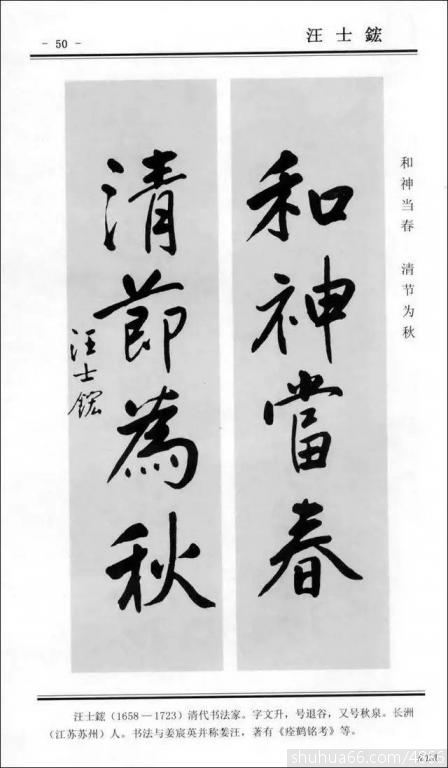 - 50 -
汪士鋐
和神当春 清节为秋
和神當春
清節為秋
汪士鋐
汪士鋐（1658—1723）清代书法家。字文升，号退谷，又号秋泉。长洲
（江苏苏州）人。书法与姜宸英并称姜汪，著有《瘗鹤铭考》等。